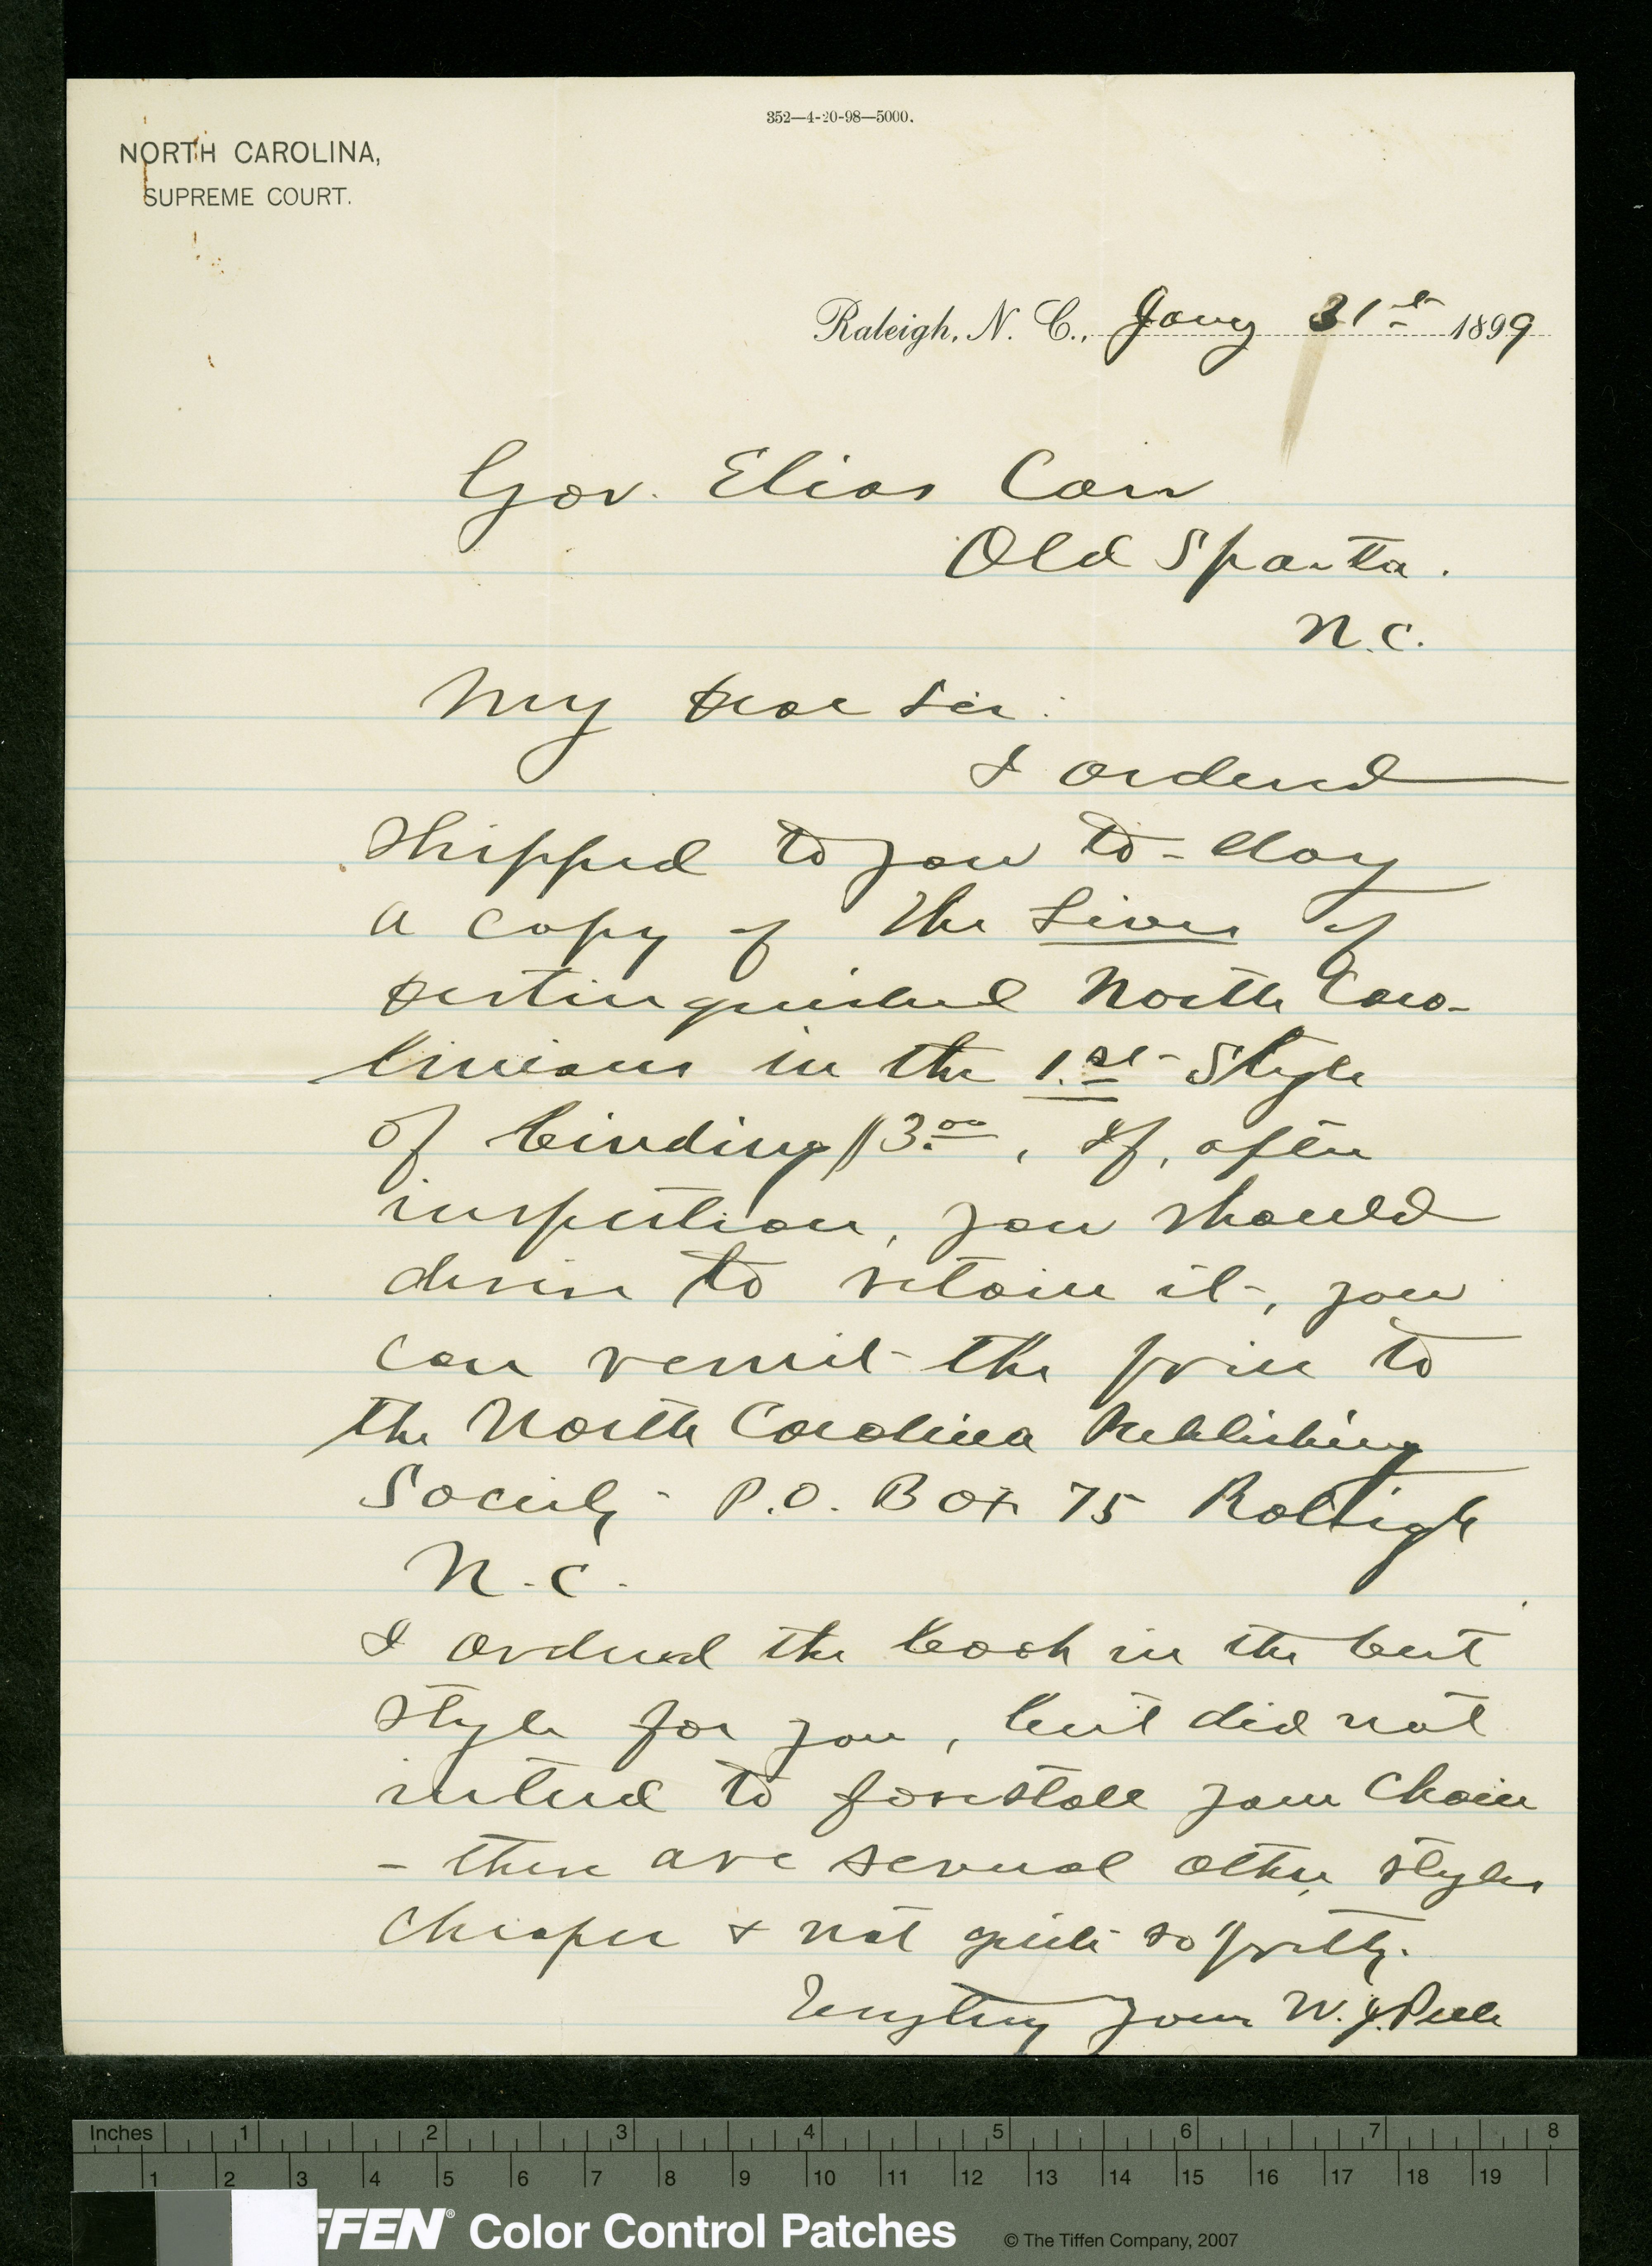 352—4-20-98—5000.
NORTH CAROLINA,
SUPREME COURT.
Raleigh, N. C., Jany 31st 1899
Gov. Elias Carr
Old Sparta.
N.C.
My Dear Sir:
I ordered
shipped to you to-day
a copy of the Lives of
Distinguished North Caro-
linians in the 1.st Style
of binding $3.00, If, after
inspection, you should
desire to retain it, you
can remit the price to
the North Carolina Publishing
Society - P.O. Box 75 Raleigh
N.C.
I ordered the book in the best
style for you, but did not
intend to forestall your choice
- there are several other styles
cheaper & not quite so pretty.
Very truly yours W. J. Peele
Inches 1 2 3 4 5 6 7 8
1 2 3 4 5 6 7 8 9 10 11 12 13 14 15 16 17 18 19
FFEN® Color Control Patches © The Tiffen Company, 2007